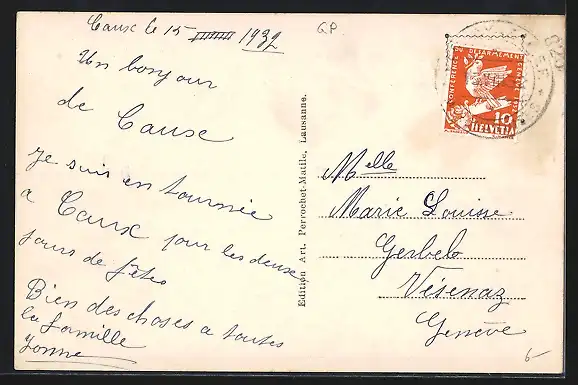 Caux le 15 1932
Un bonjour
de Cause
Je suis en tournée
a Caux pour les deux
jours de fêtes
Bien des choses a toutes
la famille
Yonne
Edition Art. Perrochet-Matile, Lausanne.
GP
CONFERENCE DU DESARMEMENT GENEVE 1932
10
HELVETIA
Melle
Marie Louise
Gerbelo
Vésenaz
Genève
6-